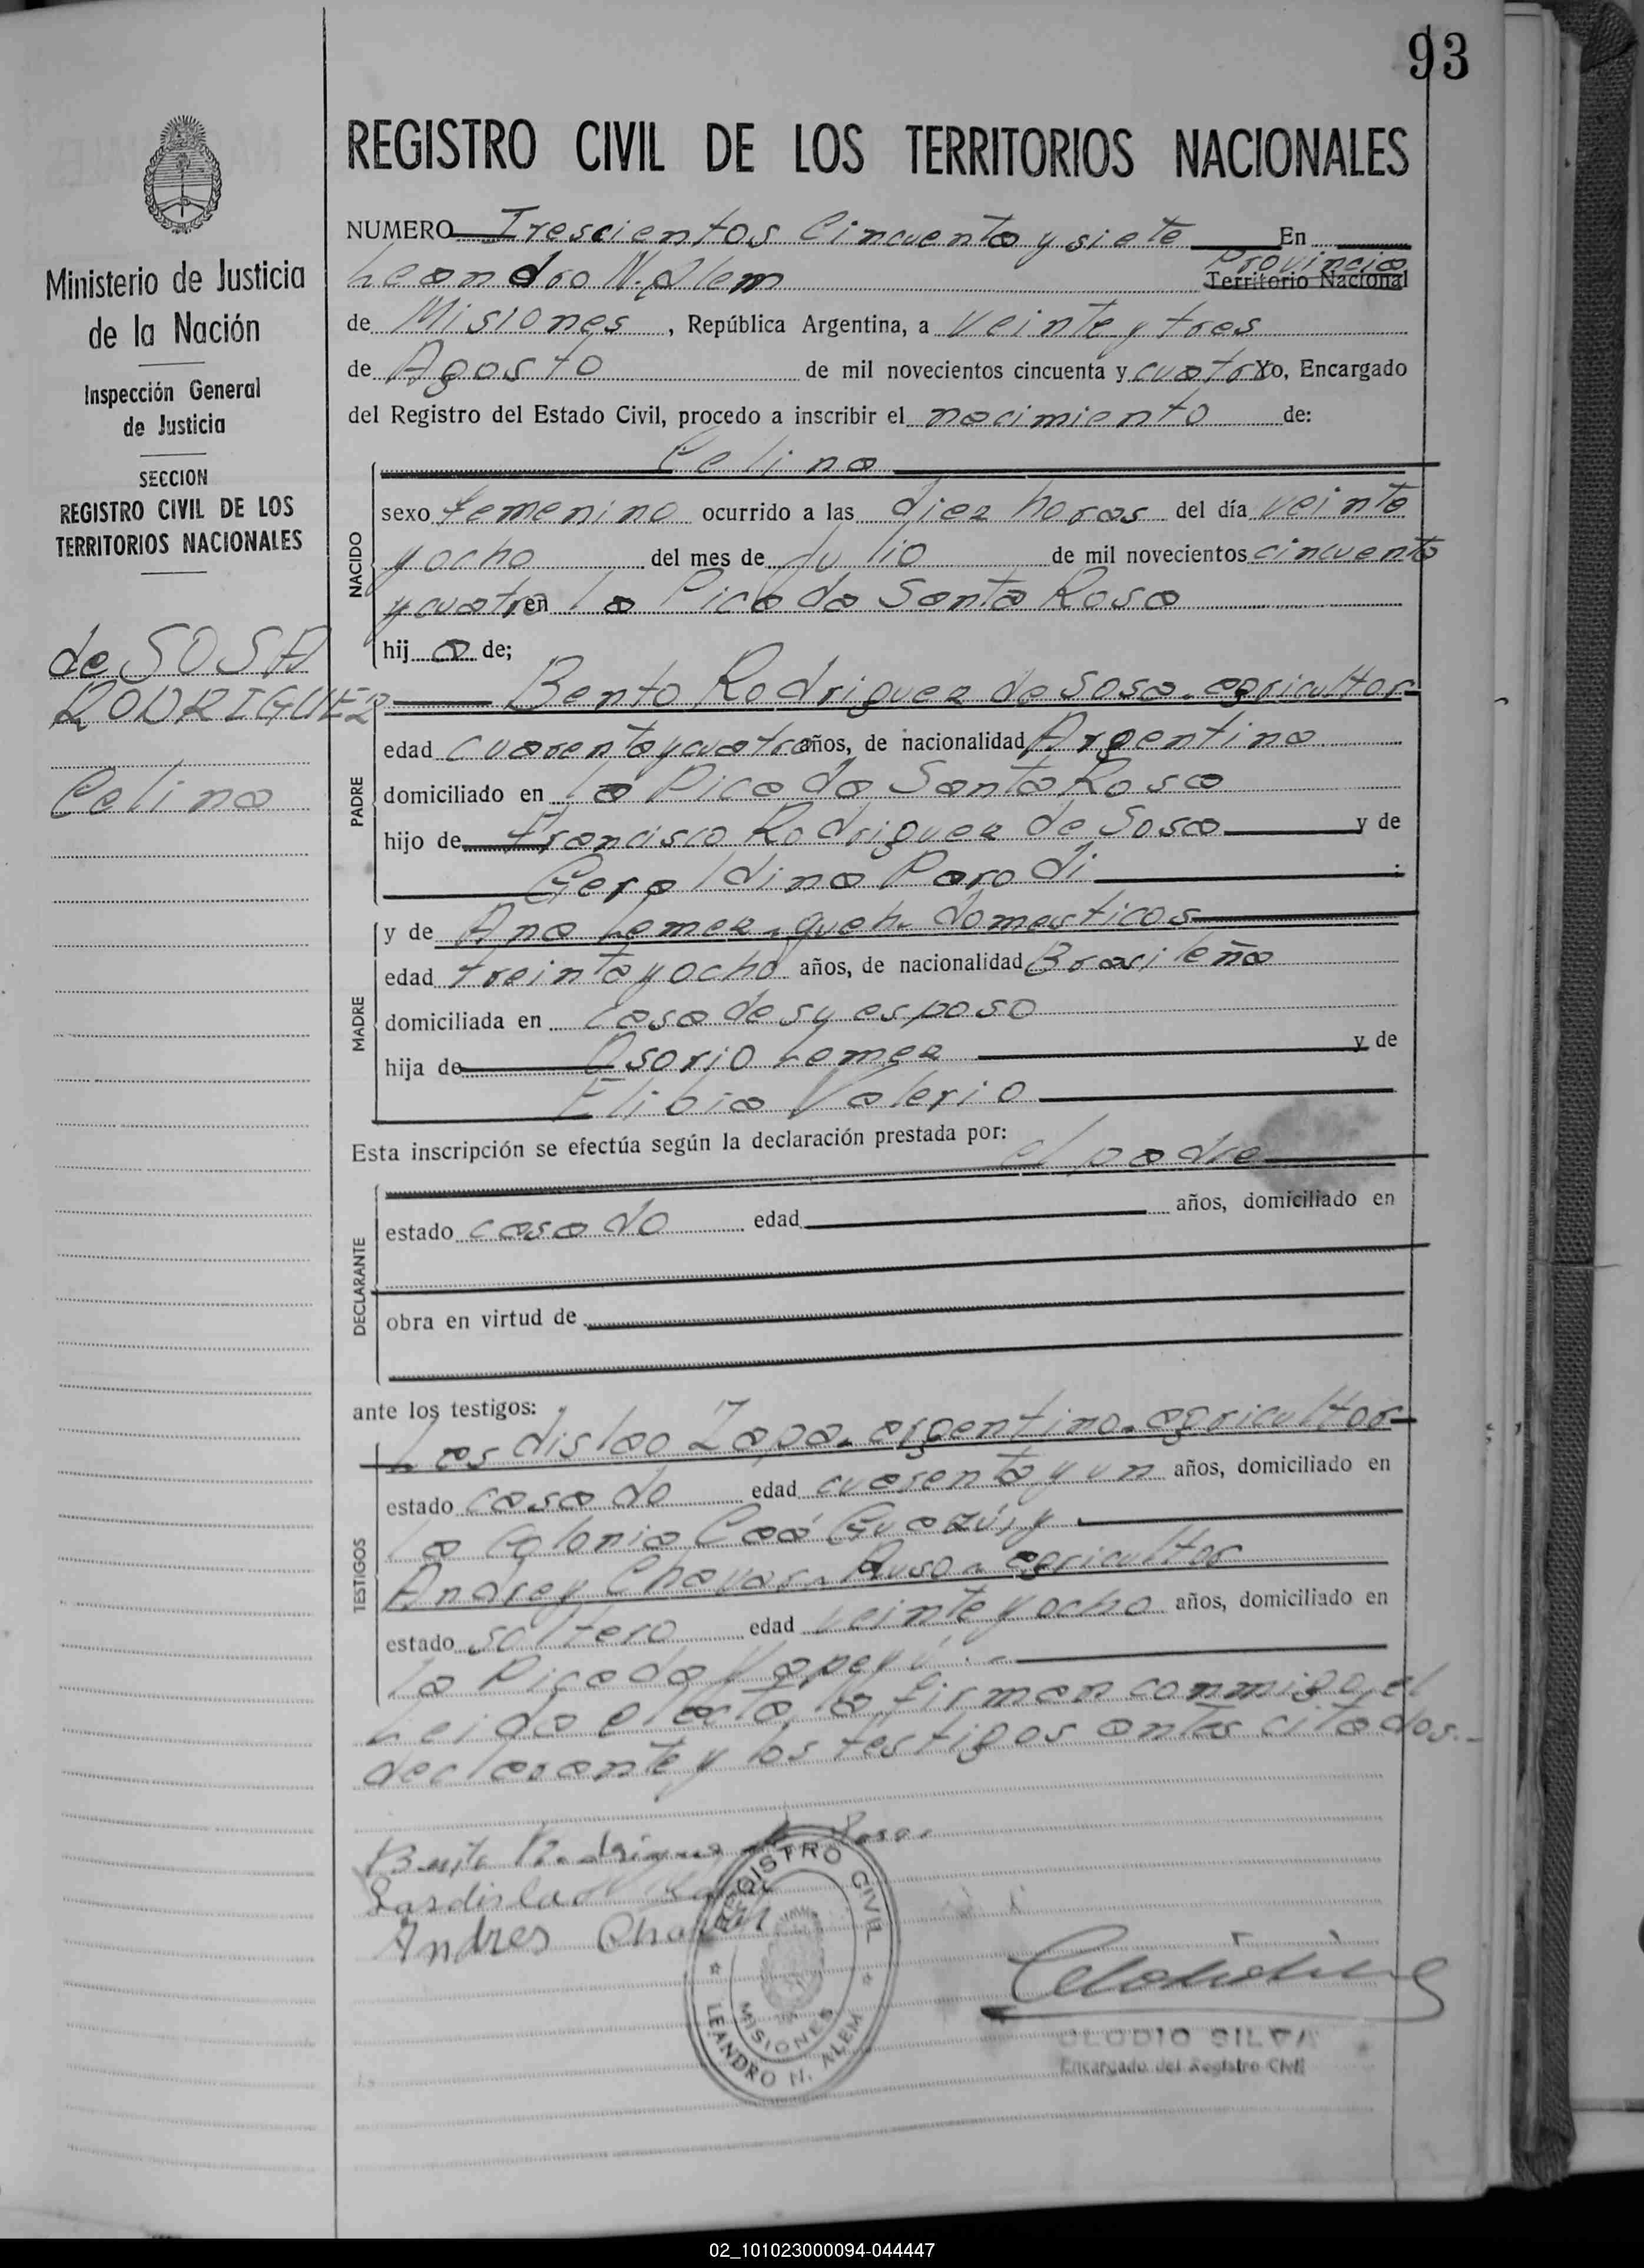 93
REGISTRO CIVIL DE LOS TERRITORIOS NACIONALES
Ministerio de Justicia
de la Nación
Inspección General
de Justicia
SECCION
REGISTRO CIVIL DE LOS
TERRITORIOS NACIONALES
de SOSA
RODRIGUEZ
Celina
NUMERO Trescientos Cincuenta y siete En
Leandro N. Alem Provincia Territorio Nacional
de Misiones, República Argentina, a veinte y tres
de Agosto de mil novecientos cincuenta y cuatro Yo, Encargado
del Registro del Estado Civil, procedo a inscribir el nacimiento de:
Celina
NACIDO
sexo femenino ocurrido a las diez horas del día veinte
y ocho del mes de Julio de mil novecientos cincuenta
y cuatro en la Picada Santa Rosa
hij a de;
Bento Rodriguez de Sosa. agricultor
PADRE
edad cuarenta y cuatro años, de nacionalidad Argentina
domiciliado en la Picada Santa Rosa
hijo de Francisco Rodriguez de Sosa y de
Geraldina Parodi;
MADRE
y de Ana Lemez. queh. domesticos
edad treinta y ocho años, de nacionalidad Brasileña
domiciliada en casa de su esposo
hija de Osorio Lemez y de
Elibia Valerio
Esta inscripción se efectúa según la declaración prestada por: el padre
DECLARANTE
estado casado edad años, domiciliado en
obra en virtud de
ante los testigos:
Lasdislao Zapa. argentino. agricultor
TESTIGOS
estado casado edad cuarenta y un años, domiciliado en
la colonia Caá Guazú, y
Andrey Chavar. Ruso. agricultor
estado soltero edad veinte y ocho años, domiciliado en
la Picada Yapeyú.
Leida el acta, la firman conmigo, el
declarante y los testigos antes citados.-
Bento Rodriguez de Sosa
Lasdislao
Andres
REGISTRO CIVIL
MISIONES
LEANDRO N. ALEM
CLODIO SILVA
Encargado del Registro Civil
02_101023000094-044447